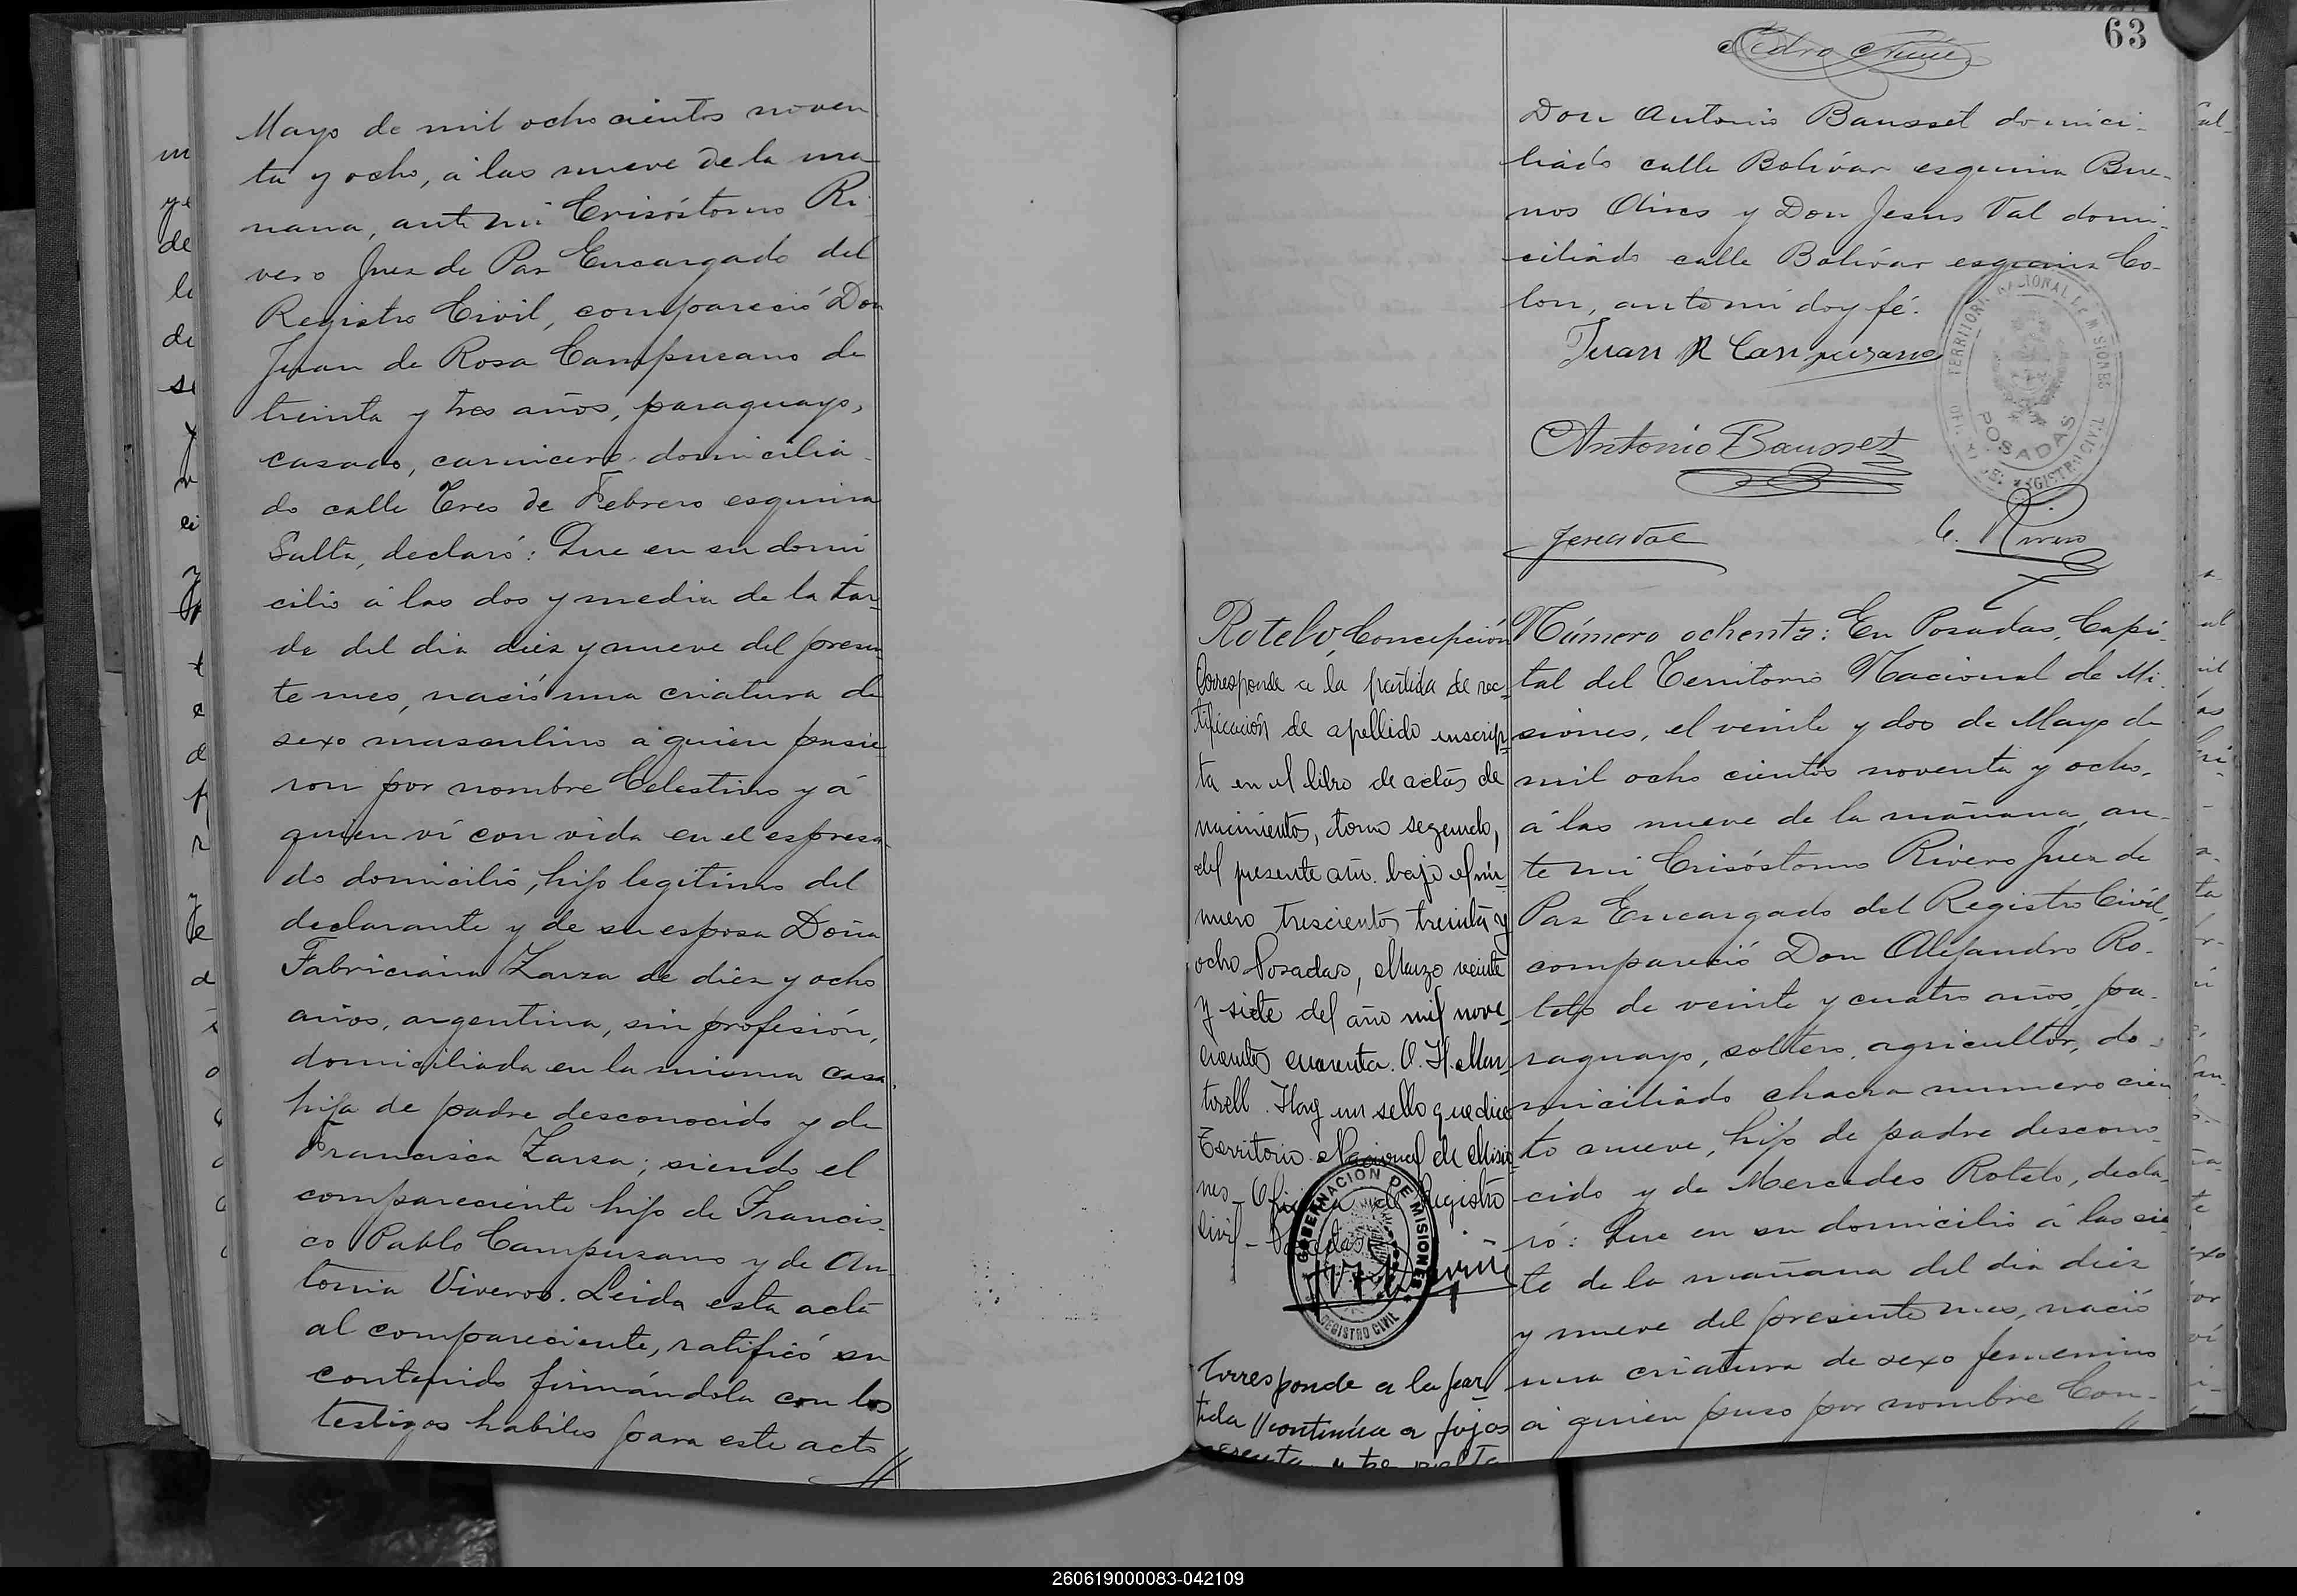 Mayo de mil ocho cientos noven
ta y ocho, á las nueve de la ma
nana, ante mi Crisóstomo Ri
vero Juez de Paz Encargado del
Registro Civil, compareció Don
Juan de Rosa Campuzano de
treinta y tres años, paraguayo,
casado, carnicero domicilia
do calle Tres de Febrero esquina
Salta, declaró: Que en su domi
cilio á las dos y media de la tar
de del dia diez y nueve del presen
te mes, nació una criatura de
sexo masculino á quien pusie
ron por nombre Celestino y á
quien ví con vida en el espresa
do domicilio, hijo legítimo del
declarante y de su esposa Doña
Fabriciana Zarza de diez y ocho
años, argentina, sin profesión,
domiciliada en la misma casa,
hija de padre desconocido y de
Francisca Zarza; siendo el
compareciente hijo de Francis
co Pablo Campuzano y de An
tonia Viveros. Leida esta acta
al compareciente, ratificó su
contenido firmándola con los
testigos habiles para este acto
63
Pedro
Don Antonio Bausset domici-
liado calle Bolívar esquina Bue-
nos Aires y Don Jesus Val domi-
ciliado calle Bolívar esquina Co-
lon, ante mi doy fé.
Juan R Campuzano
TERRITORIO NACIONAL DE MISIONES
POSADAS
REGISTRO CIVIL
Antonio Bausset
Jesus Val
C. Rivero
Rotelo, Concepción
Corresponde a la partida de rec-
tificación de apellido inscrip-
ta en el libro de actas de
nacimientos, tomo segundo,
del presente año bajo el nú-
mero trescientos treinta y
ocho Posadas, Marzo veinte
y siete del año mil nove-
cientos cuarenta. O. H. Mar-
torell. Hay un sello que dice
Territorio Nacional de Misio
nes - Oficina de Registro
Civil - Posadas
GOBERNACIÓN DE MISIONES
REGISTRO CIVIL
Corresponde a la par
tida //continúa a fojas
sesenta y tre vuelta
Número ochenta: En Posadas, Capi-
tal del Territorio Nacional de Mi-
siones, el veinte y dos de Mayo de
mil ocho cientos noventa y ocho,
á las nueve de la mañana, an-
te mi Crisóstomo Rivero Juez de
Paz Encargado del Registro Civil,
compareció Don Alejandro Ro-
telo de veinte y cuatro años, pa-
raguayo, soltero, agricultor, do-
miciliado chacra numero cien
to nueve, hijo de padre descono-
cido y de Mercedes Rotelo, decla-
ró: Que en su domicilio á las sie
te de la mañana del dia diez
y nueve del presente mes, nació
una criatura de sexo femenino
á quien puso por nombre Con-
260619000083-042109